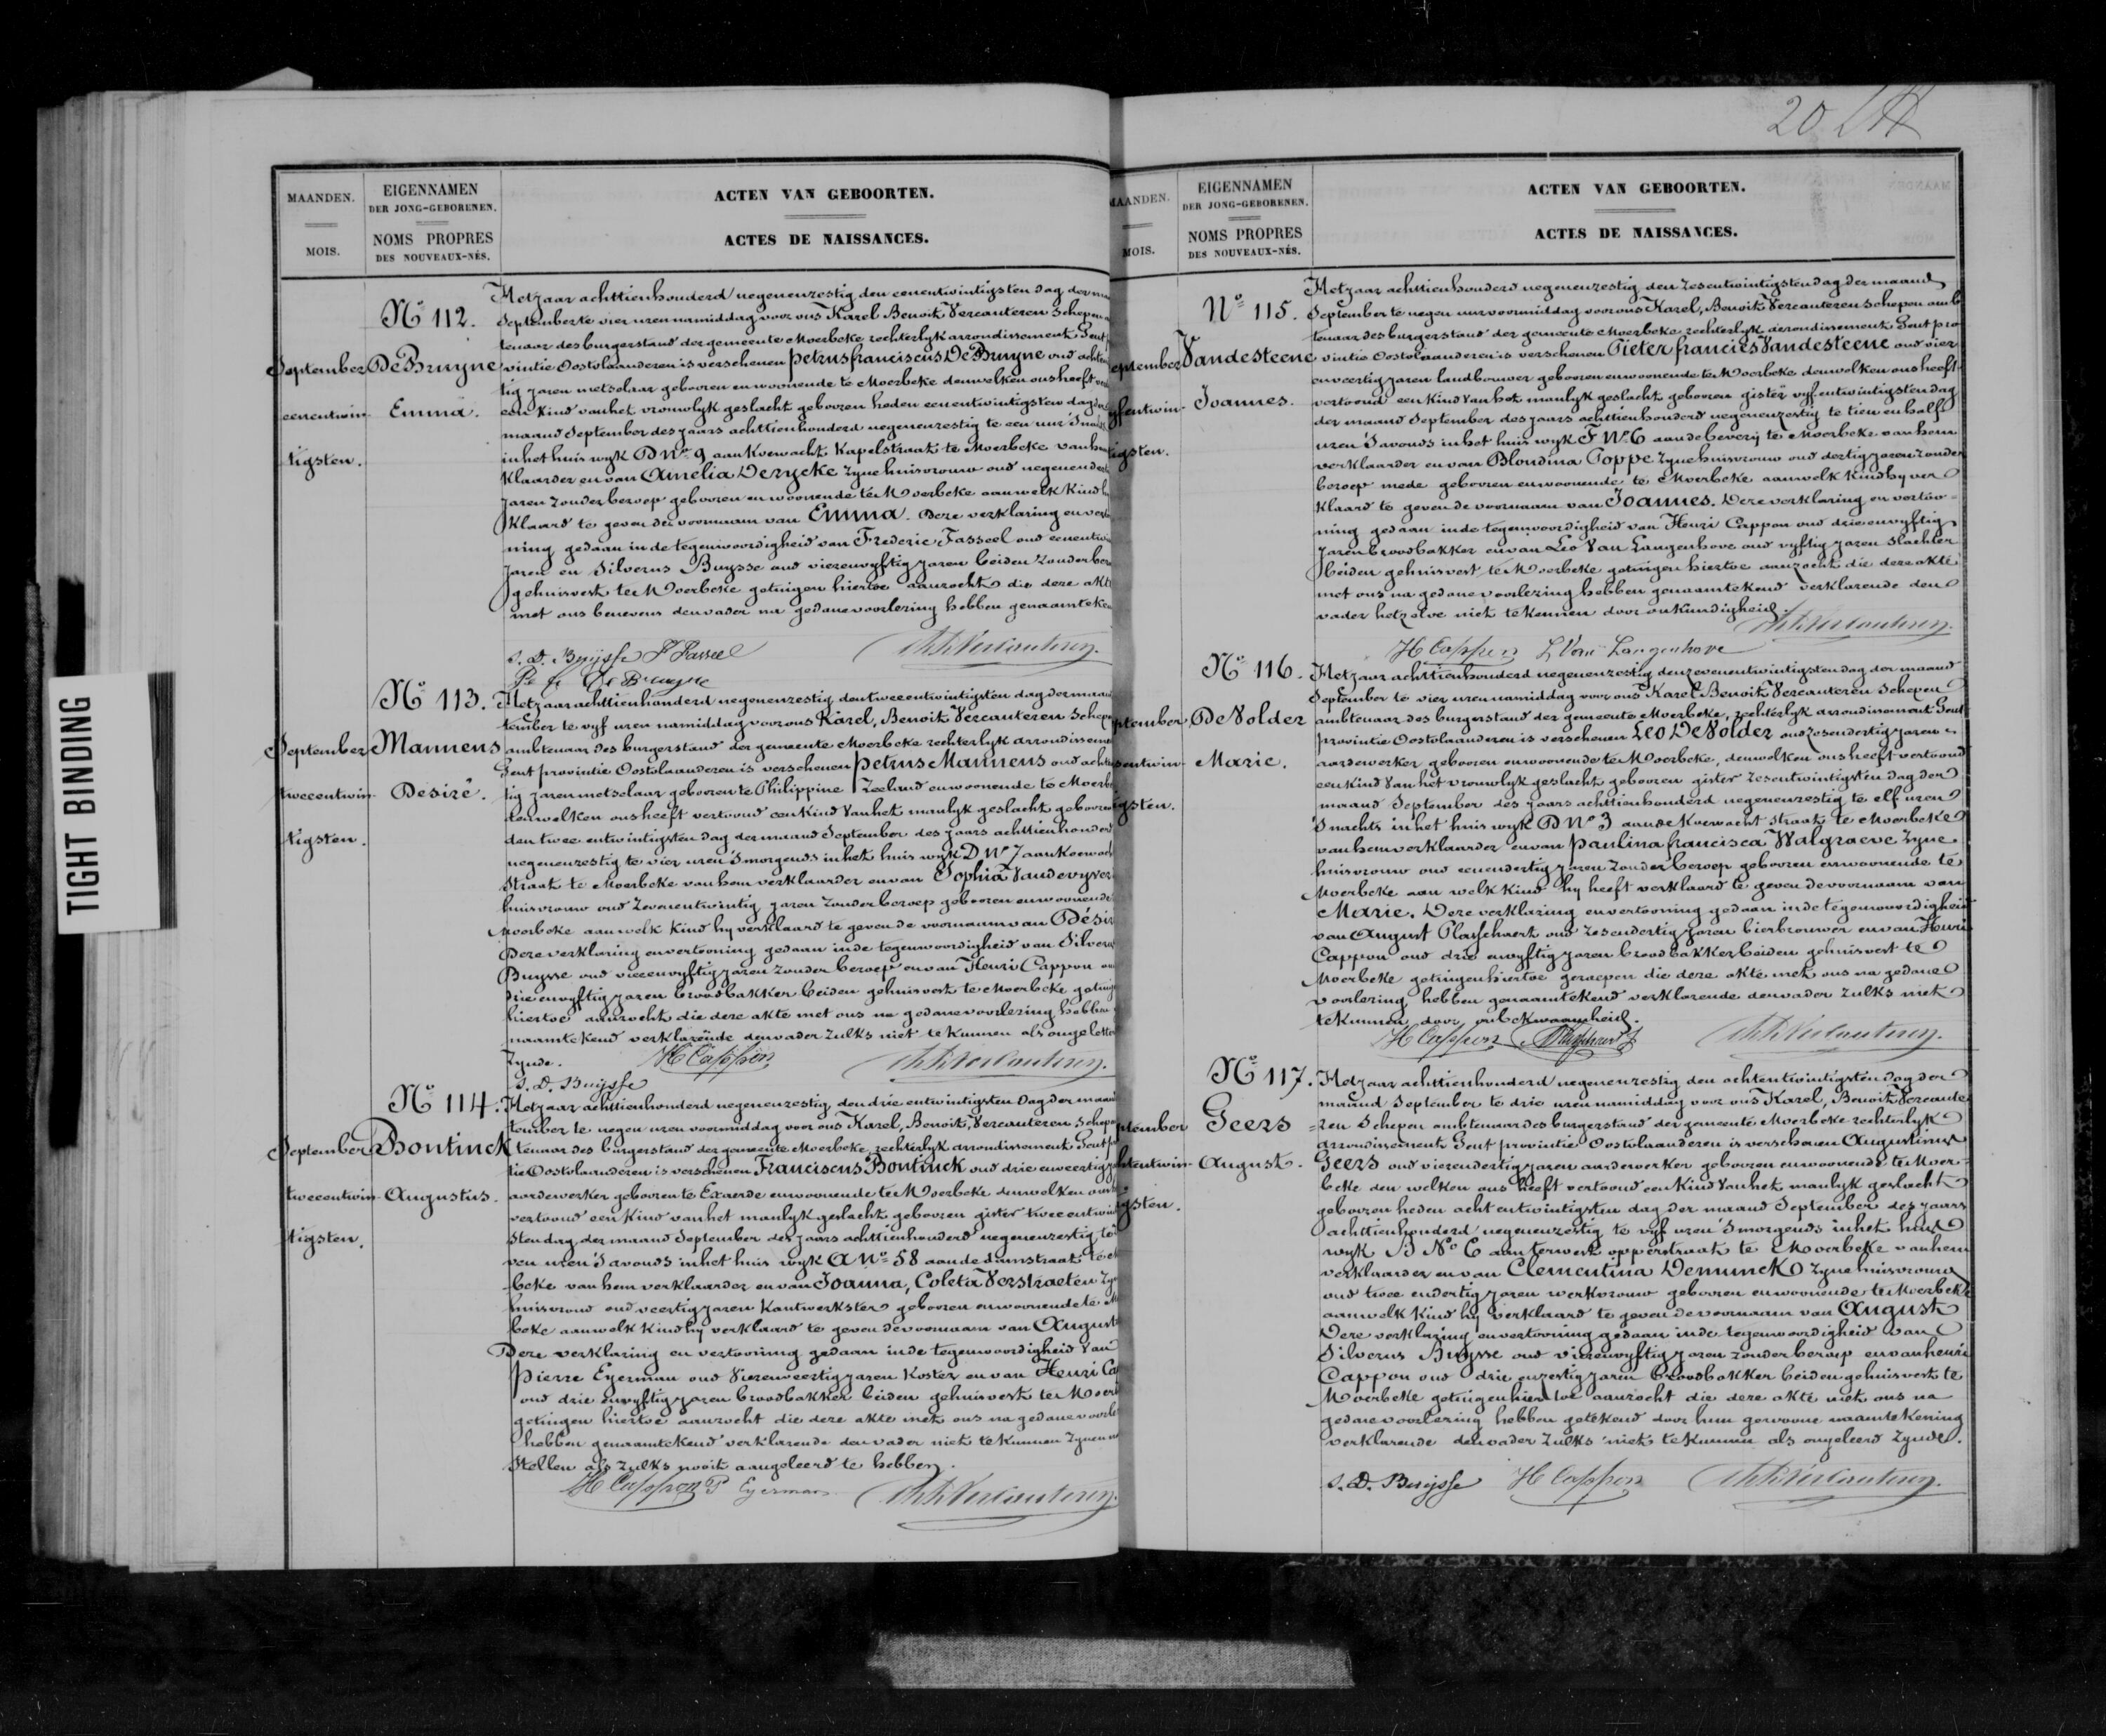 TIGHT BINDING
MAANDEN.
MOIS.
EIGENNAMEN
DER JONG-GEBORENEN.
NOMS PROPRES
DES NOUVEAUX-NÉS.
ACTEN VAN GEBOORTEN.
ACTES DE NAISSANCES.
No 112.
September
eenentwin-
tigsten.
De Bruyne
Emma.
Het jaar achttienhonderd negenenzestig den eenentwintigsten dag der
September te vier uren namiddag voor ons Karel Benoit Vercauteren Schepen
tenaar des burgerstand der gemeente Moerbeke rechterlyk arrondissement Gent
vintie Oostvlaanderen is verschenen petrus franciscus De Bruyne oud
tig jaren metselaar geboren en woonende te Moerbeke denwelken ons heeft
een kind van het vrouwlyk geslacht geboren heden eenentwintigsten dag
maand September des jaars achttienhonderd negenenzestig te een uur
in het huis wyk D No 9 aan Koewacht Kapelstraat te Moerbeke van
klaarder en van Amelia Derycke zyne huisvrouw oud
jaren zonder beroep geboren en woonende te Moerbeke aan welk kind
klaard te geven de voornaam van Emma. Deze verklaring en
ning gedaan in de tegenwoordigheid van Frederic Fasseel oud
jaren en Silverus Buysse oud vierenvyftig jaren beiden zonder
gehuisvest te Moerbeke getuigen hiertoe aanzocht die deze
met ons benevens den vader na gedane voorlezing hebben
S. D. Buysse F Fasseel
De Bruyne
No 113.
September
tweeentwin-
tigsten.
Mannens
Desiré.
Het jaar achttienhonderd negenenzestig den tweeentwintigsten dag der
tember te vyf uren namiddag voor ons Karel, Benoit Vercauteren
ambtenaar des burgerstand der gemeente Moerbeke rechterlyk
Gent provintie Oostvlaanderen is verschenen petrus Mannens oud
tig jaren metselaar geboren te Philippine Zeeland en woonende te
denwelken ons heeft vertoond een kind van het manlyk geslacht
den twee entwintigsten dag der maand September des jaars
negenenzestig te vier uren 's morgends in het huis wyk D No 7 aan
Straat te Moerbeke van hem verklaarder en van Sophia Vandevyver
huisvrouw oud zevenentwintig jaren zonder beroep geboren en woonende
Moerbeke aan welk kind hy verklaard te geven de voornaam van
Deze verklaring en vertooning gedaan in de tegenwoordigheid van
Buysse oud vierenvyftig jaren zonder beroep en van Henri Cappon
drie envyftig jaren broodbakker beiden gehuisvest te Moerbeke
hiertoe aanzocht die deze akte met ons na gedane voorlezing hebben
naamtekend verklarende den vader zulks niet te kunnen als
zynde.
H Cappon
S. D. Buysse
No 114.
September
tweeentwin-
tigsten.
Bontinck
Augustus.
Het jaar achttienhonderd negenenzestig den drie entwintigsten dag der
tember te negen uren voormiddag voor ons Karel, Benoit, Vercauteren
tenaar des burgerstand der gemeente Moerbeke, rechterlyk arrondissement Gent
tie Oostvlaanderen is verschenen Franciscus Bontinck oud drie enveertig
aardewerker geboren te Exaerde en woonende te Moerbeke denwelken
vertoond een kind van het manlyk geslacht geboren gister
sten dag der maand September des jaars achttienhonderd negenenzestig
ven uren 's avonds in het huis wyk A No 58 aan de damstraat te
beke van hem verklaarder en van Joanna, Coleta Verstraeten
huisvrouw oud veertig jaren kantwerkster geboren en woonende te
beke aan welk kind hy verklaard te geven de voornaam van
Deze verklaring en vertooning gedaan in de tegenwoordigheid van
Pierre Eyerman oud Vierenveertig jaren Koster en van Henri
oud drie envyftig jaren broodbakker beiden gehuisvest te
getuigen hiertoe aanzocht die deze akte met ons na gedane
hebben genaamtekend verklarende den vader niet te kunnen
stellen als zulks nooit aangeleerd te hebben.
H Cappon P Eyerman
MAANDEN.
MOIS.
EIGENNAMEN
DER JONG-GEBORENEN.
NOMS PROPRES
DES NOUVEAUX-NÉS.
ACTEN VAN GEBOORTEN.
ACTES DE NAISSANCES.
No 115.
Vandesteene
Joannes.
Het jaar achttienhonderd negenenzestig den zesentwintigsten dag der maand
September te negen uur voormiddag voor ons Karel, Benoit Vercauteren Schepen amb
tenaar des burgerstand der gemeente Moerbeke rechterlyk arrondissement Gent pro
vintie Oostvlaanderen is verschenen Pieter francies Vandesteene oud vier
enveertig jaren landbouwer geboren en woonende te Moerbeke denwelken ons heeft
vertoond een kind van het manlyk geslacht geboren gister vyfentwintigsten dag
der maand September des jaars achttienhonderd negenenzestig te tien en half
uren 's avonds in het huis wyk F No 6 aan de beverij te Moerbeke van hem
verklaarder en van Blondina Poppe zyne huisvrouw oud dertig jaren zonder
beroep mede geboren en woonende te Moerbeke aan welk kind hy ver
klaard te geven de voornaam van Joannes. Deze verklaring en vertoo-
ning gedaan in de tegenwoordigheid van Henri Cappon oud drie envyftig
jaren broodbakker en van Leo Van Langenhove oud vyftig jaren slachter
beiden gehuisvest te Moerbeke getuigen hiertoe aanzocht die deze akte
met ons na gedane voorlezing hebben genaamtekend verklarende den
vader hetzelve niet te kennen door onkundigheid.
H Cappon L Van Langenhove
No 116.
De Volder
Marie.
Het jaar achttienhonderd negenenzestig den zevenentwintigsten dag der maand
September te vier uren namiddag voor ons Karel Benoit Vercauteren Schepen
ambtenaar des burgerstand der gemeente Moerbeke, rechterlyk arrondissement Gent
provintie Oostvlaanderen is verschenen Leo De Volder oud zesendertig jaren
aardewerker geboren en woonende te Moerbeke, denwelken ons heeft vertoond
een kind van het vrouwlyk geslacht geboren gister zesentwintigsten dag der
maand September des jaars achttienhonderd negenenzestig te elf uren
's nachts in het huis wyk D No 3 aan de Koewacht straat te Moerbeke
van hem verklaarder en van paulina francisca Walgraeve zyne
huisvrouw oud eenendertig jaren zonder beroep geboren en woonende te
Moerbeke aan welk kind hy heeft verklaard te geven de voornaam van
Marie. Deze verklaring en vertooning gedaan in de tegenwoordigheid
van August oud zesendertig jaren bierbrouwer en van Henri
Cappon oud drie envyftig jaren broodbakker beiden gehuisvest te
Moerbeke getuigen hiertoe geroepen die deze akte met ons na gedane
voorlezing hebben genaamtekend verklarende den vader zulks niet
te kunnen door onbekwaamheid.
H Cappon
No 117.
Geers
August.
Het jaar achttienhonderd negenenzestig den achtentwintigsten dag der
maand September te drie uren namiddag voor ons Karel, Benoit Vercaute
ren Schepen ambtenaar des burgerstand der gemeente Moerbeke rechterlyk
arrondissement Gent provintie Oostvlaanderen is verschenen Augustinus
Geers oud vierendertig jaren aardewerker geboren en woonende te Moer-
beke den welken ons heeft vertoond een kind van het manlyk geslacht
geboren heden acht entwintigsten dag der maand September des jaars
achttienhonderd negenenzestig te vyf uren 's morgends in het huis
wyk B No 6 aan terwest opperstraat te Moerbeke van hem
verklaarder en van Clementina Demunck zyne huisvrouw
oud twee endertig jaren werkvrouw geboren en woonende te Moerbeke
aan welk kind hy verklaard te geven de voornaam van August
Deze verklaring en vertooning gedaan in de tegenwoordigheid van
Silverus Buysse oud vierenvyftig jaren zonder beroep en van henri
Cappon oud drie enzestig jaren broodbakker beiden gehuisvest te
Moerbeke getuigen hier toe aanzocht die deze akte met ons na
gedane voorlezing hebben getekend door hun gewoone naamtekening
verklarende den vader zulks niet te kunnen als ongeleerd zynde.
S. D. Buysse H Cappon